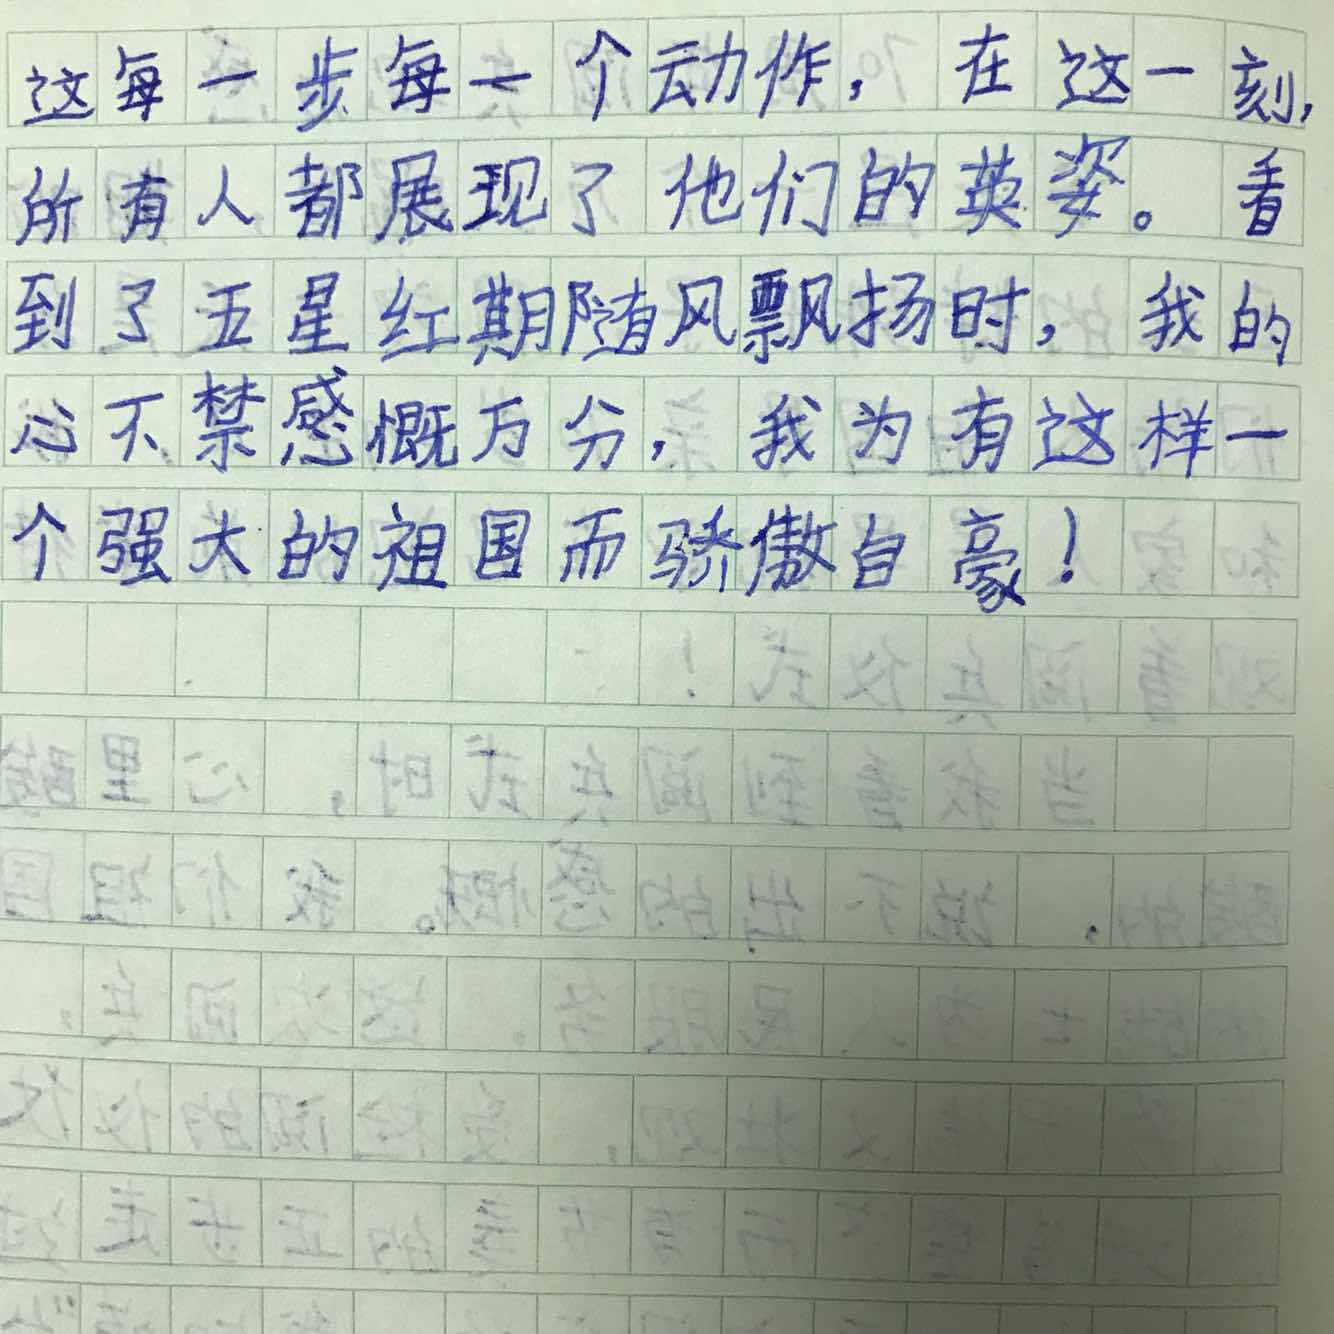 这每一步每一个动作，在这一刻，
所有人都展现了他们的英姿。看
到了五星红期随风飘扬时，我的
心不禁感慨万分，我为有这样一
个强大的祖国而骄傲自豪！